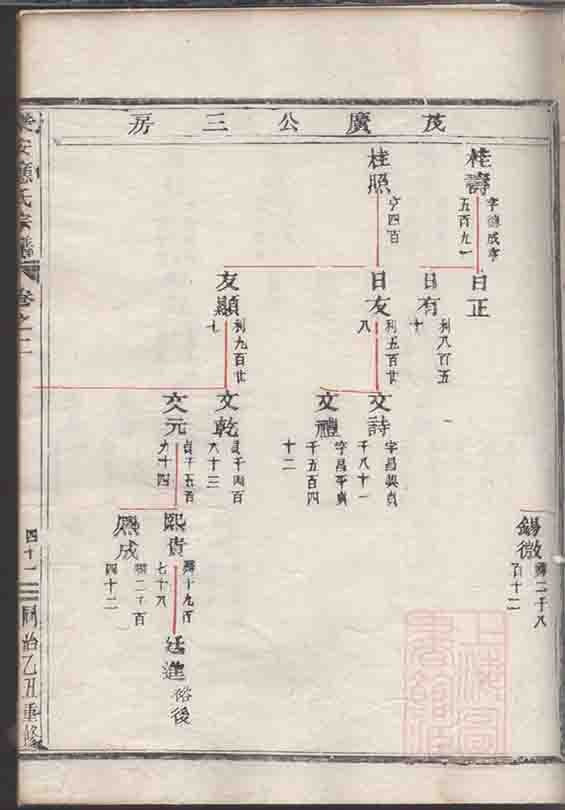 茂廣公三房
桂壽
字德成亨
五百九一
日正
日有
利八百五
十
錫微
廾二千八
百十二
桂照
亨四百
日友
利五百廿
八
友顯
利九百廿
七
文詩
字昌興貞
千八十一
文禮
字昌平貞
千五百四
十二
文乾
貞千四百
六十三
文元
貞千五百
九十四
熙貴
十九百
七十八
熙成
二千百
四十二
廷進
裕後
安應氏宗譜
卷之二
四十一
同治乙丑重修
上海圖書館藏